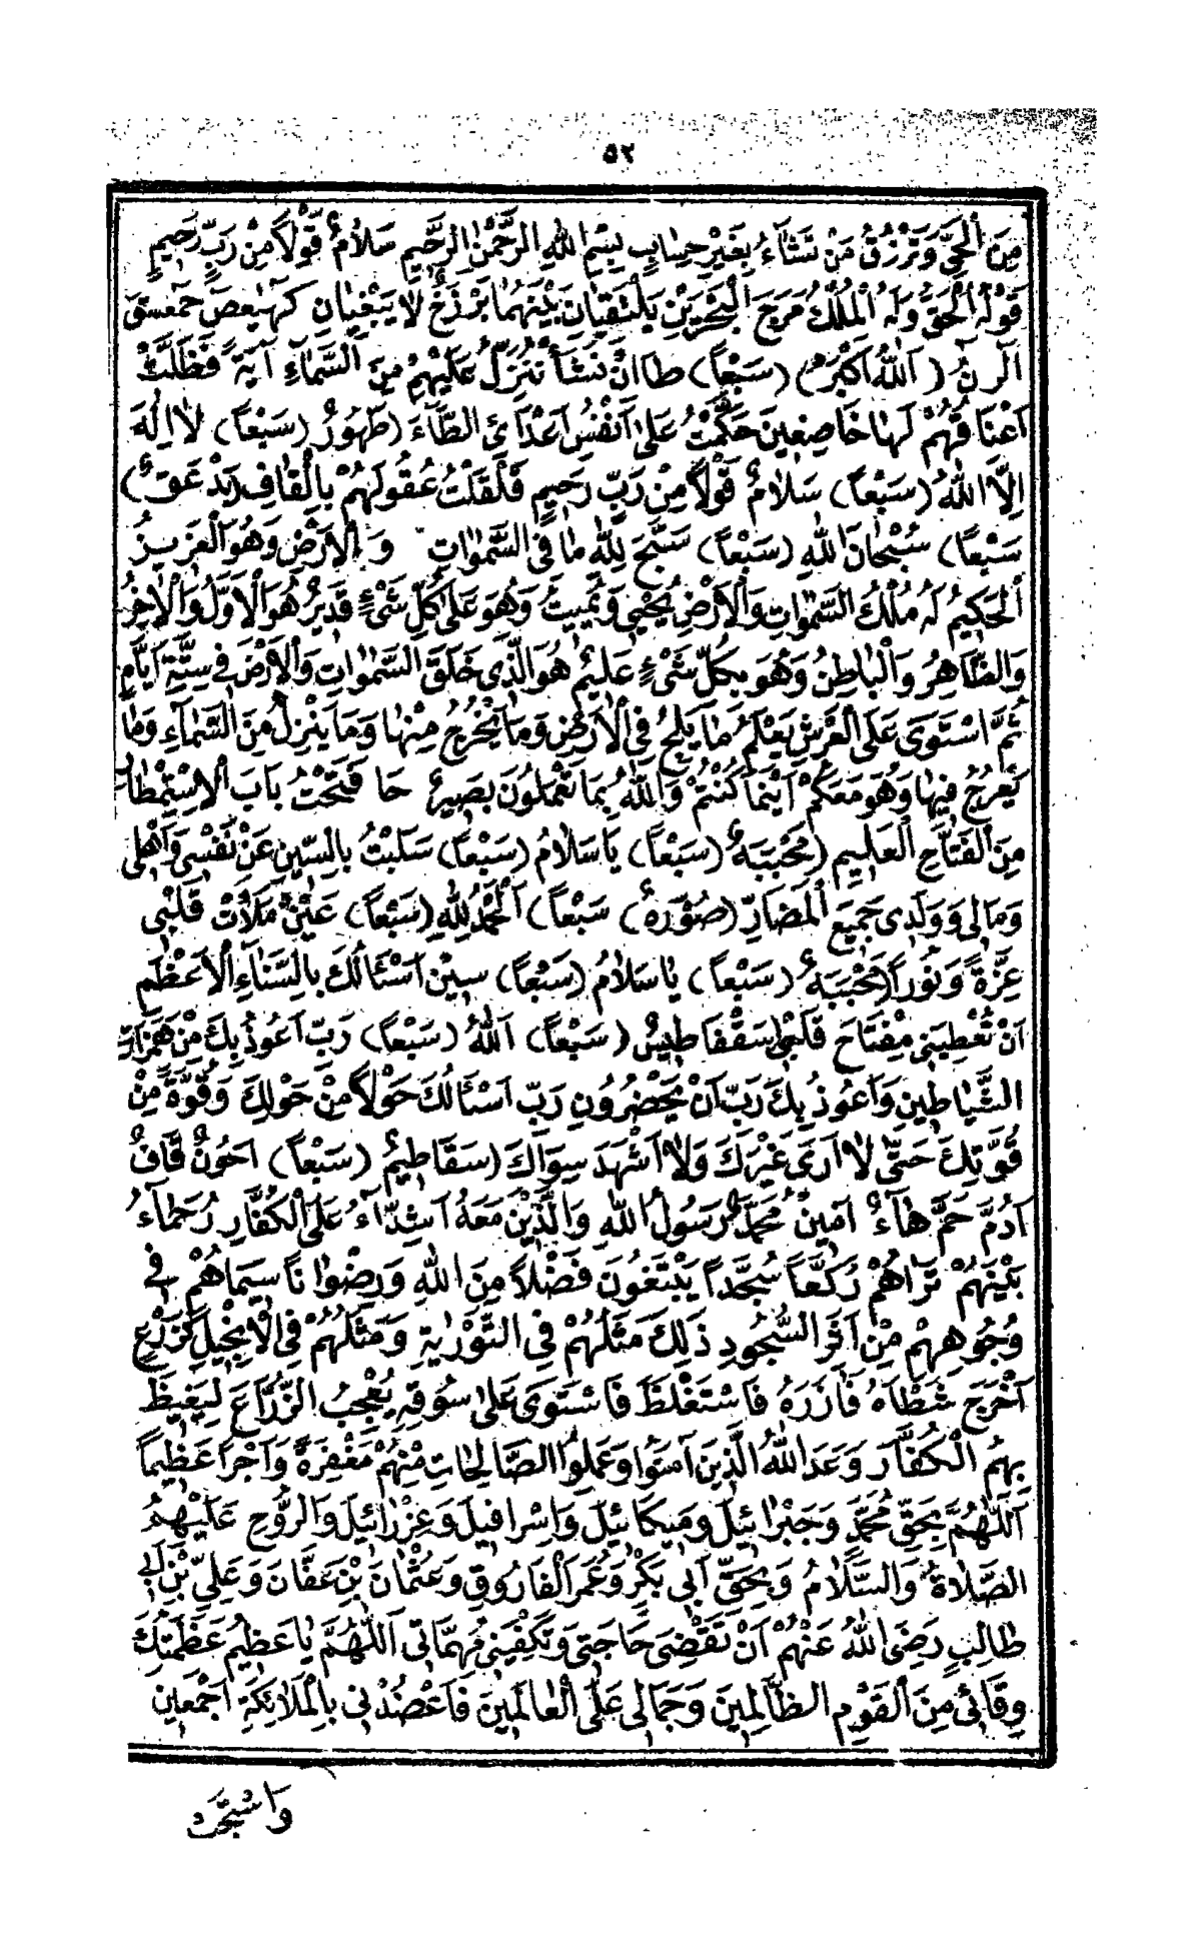 ٥٢
مِنَ ٱلْحَيِّ وَتَرْزُقُ مَنْ تَشَآءُ بِغَيْرِ حِسَابٍ بِسْمِ اللهِ الرَّحْمٰنِ الرَّحِيمِ سَلَامٌ قَوْلًا مِنْ رَبٍّ رَحِيمٍ
قَوْلُهُ الْحَقُّ وَلَهُ الْمُلْكُ مَرَجَ الْبَحْرَيْنِ يَلْتَقِيَانِ بَيْنَهُمَا بَرْزَخٌ لَا يَبْغِيَانِ كَهٰيٰعص حٰمعسق
اَلرن (اَللهُ اَكْبَرُ) (سَبْعاً) طا اِنْ نَشَأْ نُنَزِّلْ عَلَيْهِمْ مِنَ السَّمَاءِ آيَةً فَظَلَّتْ
اَعْنَاقُهُمْ لَهَا خَاضِعِينَ حَكَمْتُ عَلٰى اَنْفُسِ اَعْدَائِى الطَّآءَ (طَهُورٌ (سَبْعاً) لَا اِلٰهَ
اِلَّا اللهُ (سَبْعاً) سَلَامٌ قَوْلًا مِنْ رَبٍّ رَحِيمٍ فَلْقَلْتُ عُقُولَهُمْ بِالْقَافِ (بَدْعَقٌ)
سَبْعاً) سُبْحَانَ اللهِ (سَبْعاً) سَبَّحَ لِلّٰهِ مَا فِى السَّمٰوَاتِ وَ الْاَرْضِ وَهُوَ الْعَزِيزُ
اَلْحَكِيمُ لَهُ مُلْكُ السَّمٰوَاتِ وَالْاَرْضِ يُحْيِى وَيُمِيتُ وَهُوَ عَلٰى كُلِّ شَىْءٍ قَدِيرٌ هُوَ الْاَوَّلُ وَالْاٰخِرُ
وَالظَّاهِرُ وَالْبَاطِنُ وَهُوَ بِكُلِّ شَىْءٍ عَلِيمٌ هُوَ الَّذِى خَلَقَ السَّمٰوَاتِ وَالْاَرْضَ فِى سِتَّةِ اَيَّامٍ
ثُمَّ اسْتَوَى عَلَى الْعَرْشِ يَعْلَمُ مَا يَلِجُ فِى الْاَرْضِ وَمَا يَخْرُجُ مِنْهَا وَمَا يَنْزِلُ مِنَ السَّمَآءِ وَمَا
يَعْرُجُ فِيهَا وَهُوَ مَعَكُمْ اَيْنَمَا كُنْتُمْ وَاللهُ بِمَا تَعْمَلُونَ بَصِيرٌ حَا فَتَحْتُ بَابَ الْاِسْتِمْطَار
مِنَ الْفَتَّاحِ الْعَلِيمِ (مَحْبَبَهٌ (سَبْعاً) يَا سَلَامُ (سَبْعاً) سَلَبْتُ بِالسِّينِ عَنْ نَفْسِى وَاَهْلِى
وَمَالِى وَوَلَدِى جَمِيعَ الْمَضَارِّ (صُوْرَهٌ) سَبْعاً) اَلْحَمْدُ لِلّٰهِ (سَبْعاً) عَيْنٌ مَلَأَتْ قَلْبِى
عِزَّةً وَنُوراً (مَحْبَبَهٌ (سَبْعاً) يَا سَلَامُ (سَبْعاً) سِينْ اَسْئَالُكَ بِالسَّنَآءِ الْاَعْظَمِ
اَنْ تُعْطِيَنِى مِفْتَاحَ قَلْبِى (سَقْفَاطِيسٌ (سَبْعاً) اَللهُ (سَبْعاً) رَبِّ اَعُوذُ بِكَ مِنْ هَمَزَاتِ
الشَّيَاطِينِ وَاَعُوذُ بِكَ رَبِّ اَنْ يَحْضُرُونِ رَبِّ اَسْئَالُكَ حَوْلًا مِنْ حَوْلِكَ وَقُوَّةً مِنْ
قُوَّتِكَ حَتّٰى لَا اَرَى غَيْرَكَ وَلَا اَشْهَدَ سِوَاكَ (سَقَاطِيمٌ (سَبْعاً) اَحُونٌ قَافٌ
اَدُمَّ حَمَّ هَآءٌ آمِينٌ مُحَمَّدٌ رَسُولُ اللهِ وَالَّذِينَ مَعَهُ اَشِدَّآءُ عَلَى الْكُفَّارِ رُحَمَآءُ
بَيْنَهُمْ تَرَاهُمْ رُكَّعاً سُجَّداً يَبْتَغُونَ فَضْلًا مِنَ اللهِ وَرِضْوَانًا سِيمَاهُمْ فِى
وُجُوهِهِمْ مِنْ اَثَرِ السُّجُودِ ذٰلِكَ مَثَلُهُمْ فِى التَّوْرٰيةِ وَمَثَلُهُمْ فِى الْاِنْجِيلِ كَزَرْعٍ
اَخْرَجَ شَطْاَهُ فَاٰزَرَهُ فَاسْتَغْلَظَ فَاسْتَوَى عَلٰى سُوقِهِ يُعْجِبُ الزُّرَّاعَ لِيَغِيظَ
بِهِمُ الْكُفَّارَ وَعَدَ اللهُ الَّذِينَ آمَنُوا وَعَمِلُوا الصَّالِحَاتِ مِنْهُمْ مَغْفِرَةً وَاَجْرًا عَظِيماً
اَللّٰهُمَّ بِحَقِّ مُحَمَّدٍ وَجَبْرَائِيلَ وَمِيكَائِيلَ وَاِسْرَافِيلَ وَعِزْرَائِيلَ وَالرُّوحِ عَلَيْهِمُ
الصَّلَاةُ وَالسَّلَامُ وَبِحَقِّ اَبِى بَكْرٍ وَعُمَرَ الْفَارُوقِ وَعُثْمَانَ بْنِ عَفَّانَ وَعَلِىِّ بْنِ اَبِى
طَالِبٍ رَضِىَ اللهُ عَنْهُمْ اَنْ تَقْضِىَ حَاجَتِى وَتَكْفِيَنِى مُهِمَّاتِى اَللّٰهُمَّ يَا عَظِيمُ عَظَمَتُكَ
وِقَائِى مِنَ الْقَوْمِ الظَّالِمِينَ وَجَمَالِى عَلَى الْعَالَمِينَ فَاَعْضُدْنِى بِالْمَلَائِكَةِ اَجْمَعِينَ